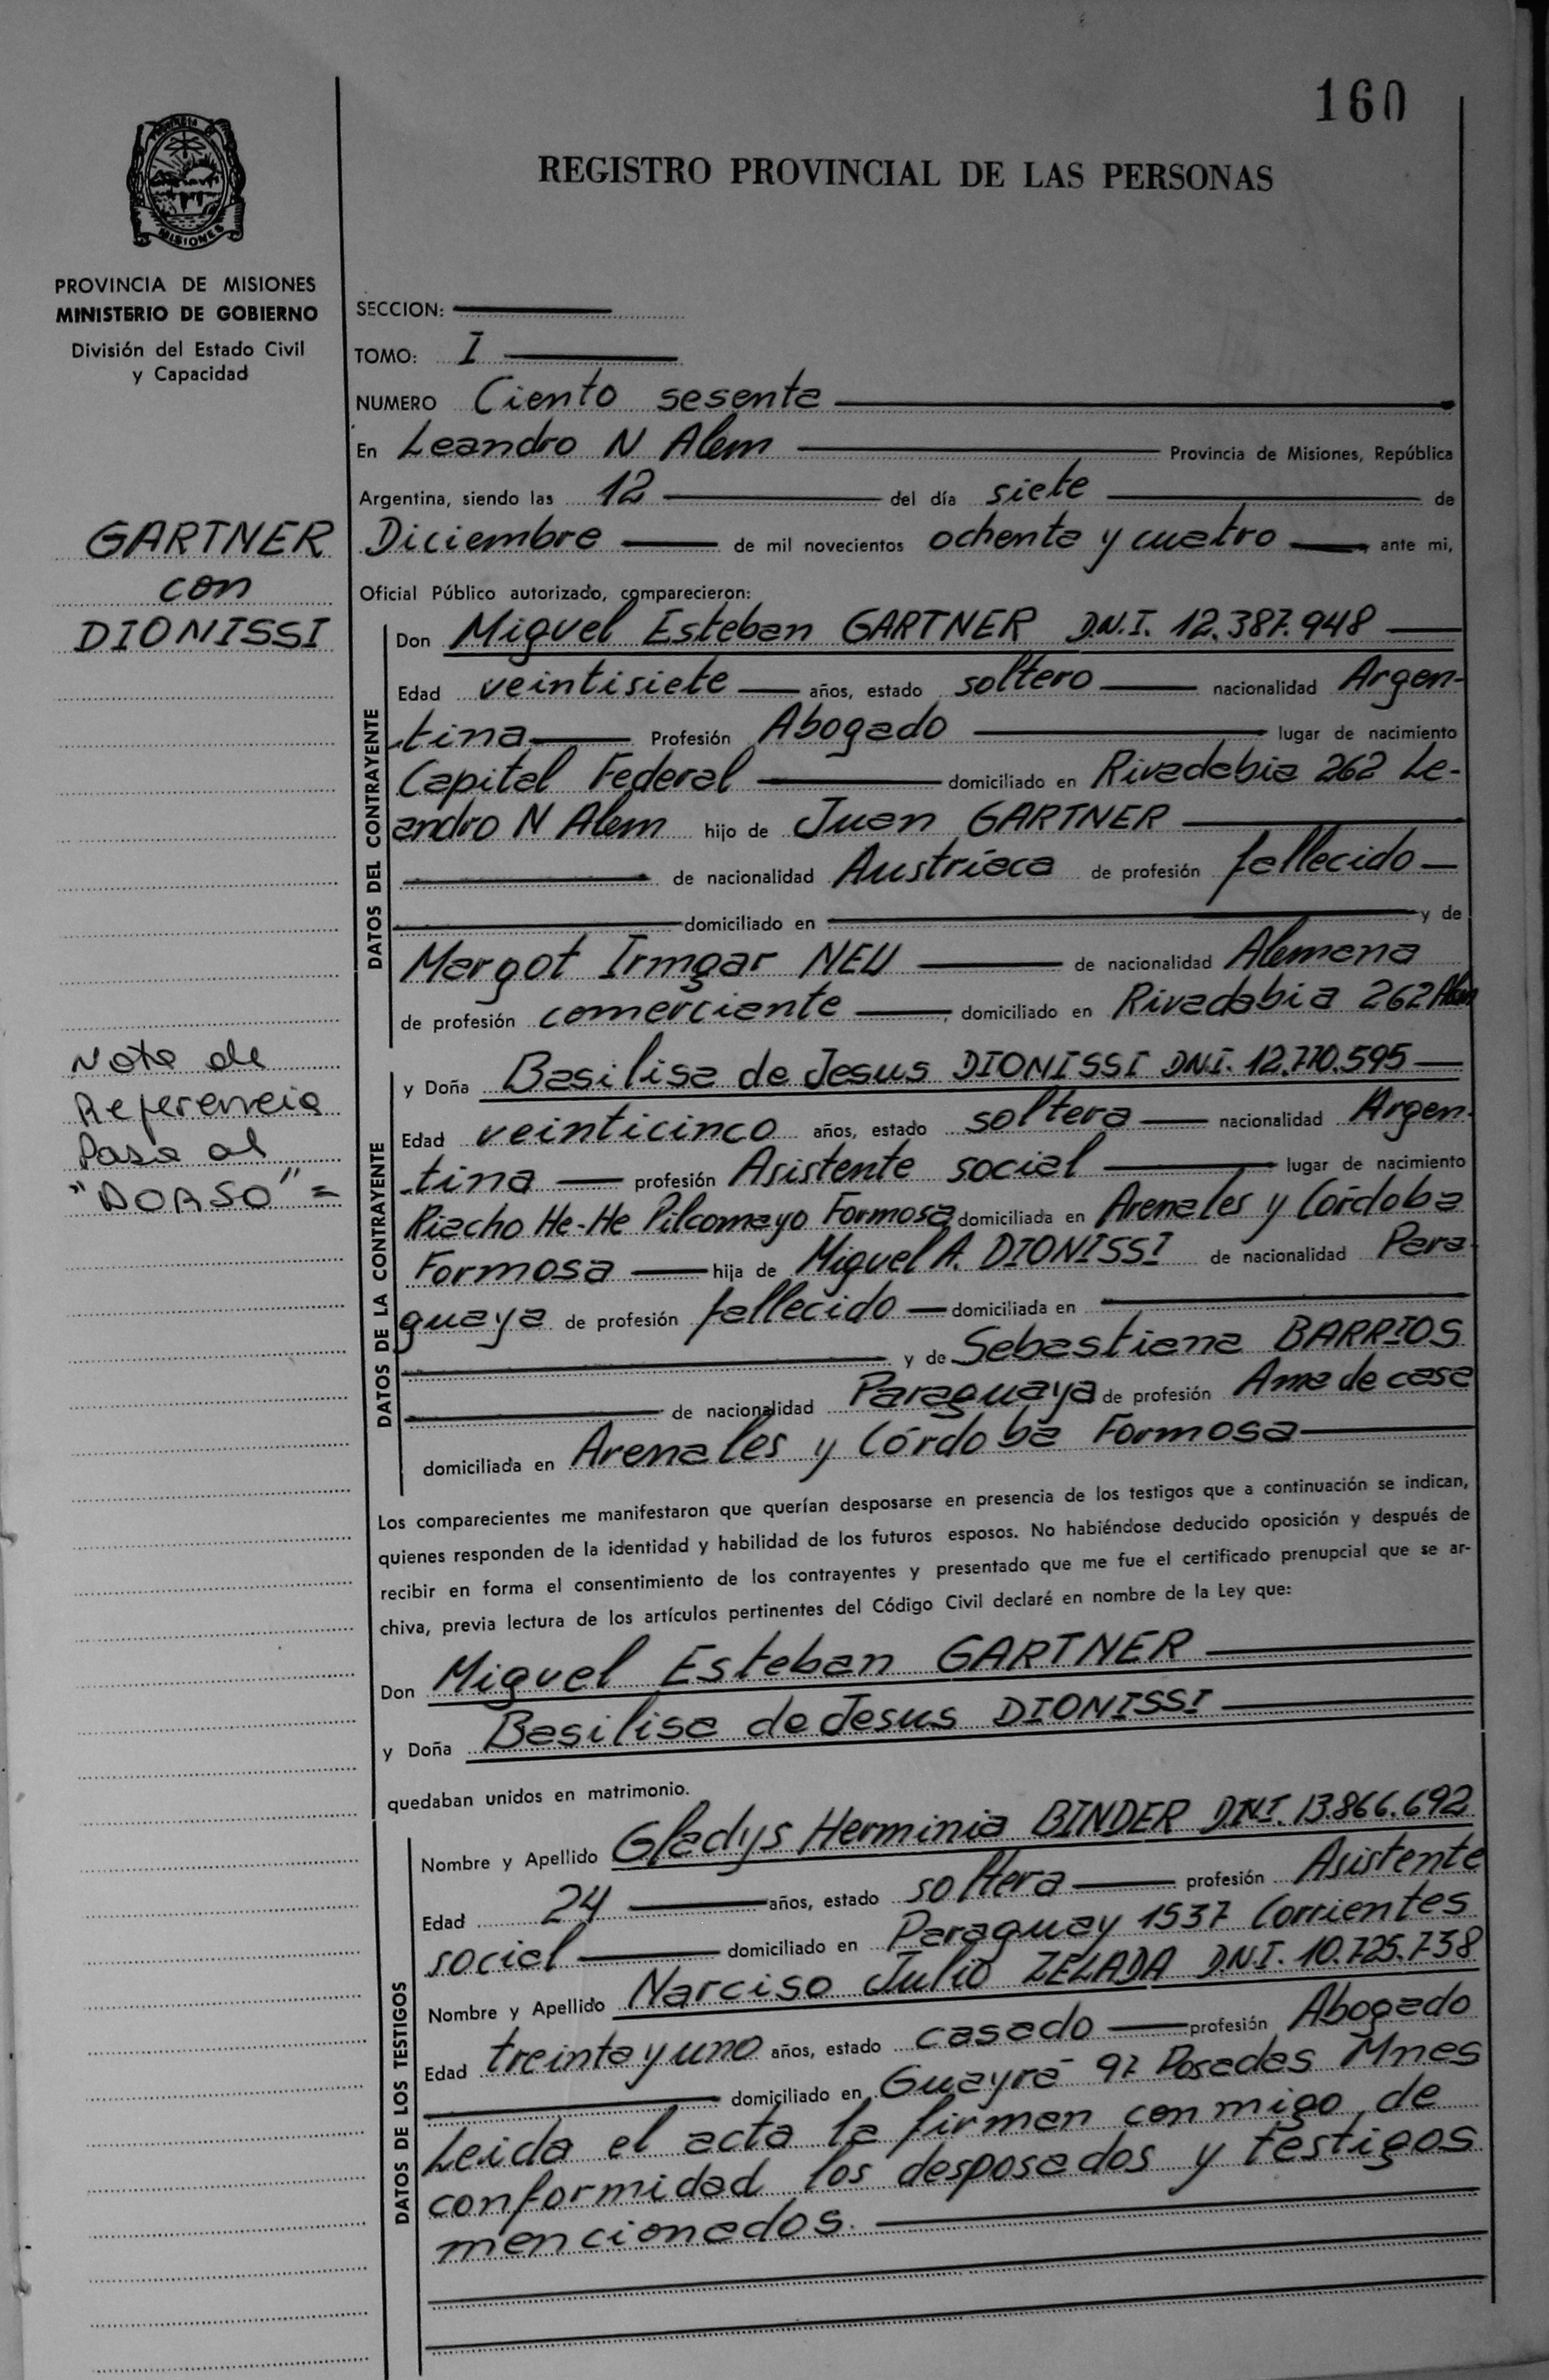 160
REGISTRO PROVINCIAL DE LAS PERSONAS
PROVINCIA DE
MISIONES
PROVINCIA DE MISIONES
MINISTERIO DE GOBIERNO
División del Estado Civil
y Capacidad
GARTNER
con
DIONISSI
Nota de
Referencia
Pasa al
"DORSO" =
SECCION:
TOMO: I
NUMERO Ciento sesenta
En Leandro N Alem Provincia de Misiones, República
Argentina, siendo las 12 del día siete de
Diciembre de mil novecientos ochenta y cuatro ante mi,
Oficial Público autorizado, comparecieron:
DATOS DEL CONTRAYENTE
Don Miguel Esteban GARTNER D.N.I. 12.387.948
Edad veintisiete años, estado soltero nacionalidad Argen-
tina Profesión Abogado lugar de nacimiento
Capital Federal domiciliado en Rivadabia 262 Le-
andro N Alem hijo de Juan GARTNER
de nacionalidad Austríaca de profesión fallecido
domiciliado en y de
Margot Irmgar NEU de nacionalidad Alemana
de profesión comerciante domiciliado en Rivadabia 262 Alem
DATOS DE LA CONTRAYENTE
y Doña Basilisa de Jesus DIONISSI DNI. 12.770.595
Edad veinticinco años, estado soltera nacionalidad Argen-
tina profesión Asistente social lugar de nacimiento
Riacho He-He Pilcomayo Formosa domiciliada en Arenales y Córdoba
Formosa hija de Miguel A. DIONISSI de nacionalidad Para-
guaya de profesión fallecido domiciliada en
y de Sebastiana BARRIOS
de nacionalidad Paraguaya de profesión Ama de casa
domiciliada en Arenales y Córdoba Formosa
Los comparecientes me manifestaron que querían desposarse en presencia de los testigos que a continuación se indican,
quienes responden de la identidad y habilidad de los futuros esposos. No habiéndose deducido oposición y después de
recibir en forma el consentimiento de los contrayentes y presentado que me fue el certificado prenupcial que se ar-
chiva, previa lectura de los artículos pertinentes del Código Civil declaré en nombre de la Ley que:
Don Miguel Esteban GARTNER
y Doña Basilisa de Jesus DIONISSI
quedaban unidos en matrimonio.
DATOS DE LOS TESTIGOS
Nombre y Apellido Gladys Herminia BINDER D.N.I. 13.866.692
Edad 24 años, estado soltera profesión Asistente
social domiciliado en Paraguay 1537 Corrientes
Nombre y Apellido Narciso Julio ZELADA D.N.I. 10.725.738
Edad treinta y uno años, estado casado profesión Abogado
domiciliado en Guayrá 97 Posadas Mnes
Leida el acta la firman conmigo de
conformidad los desposados y testigos
mencionados.